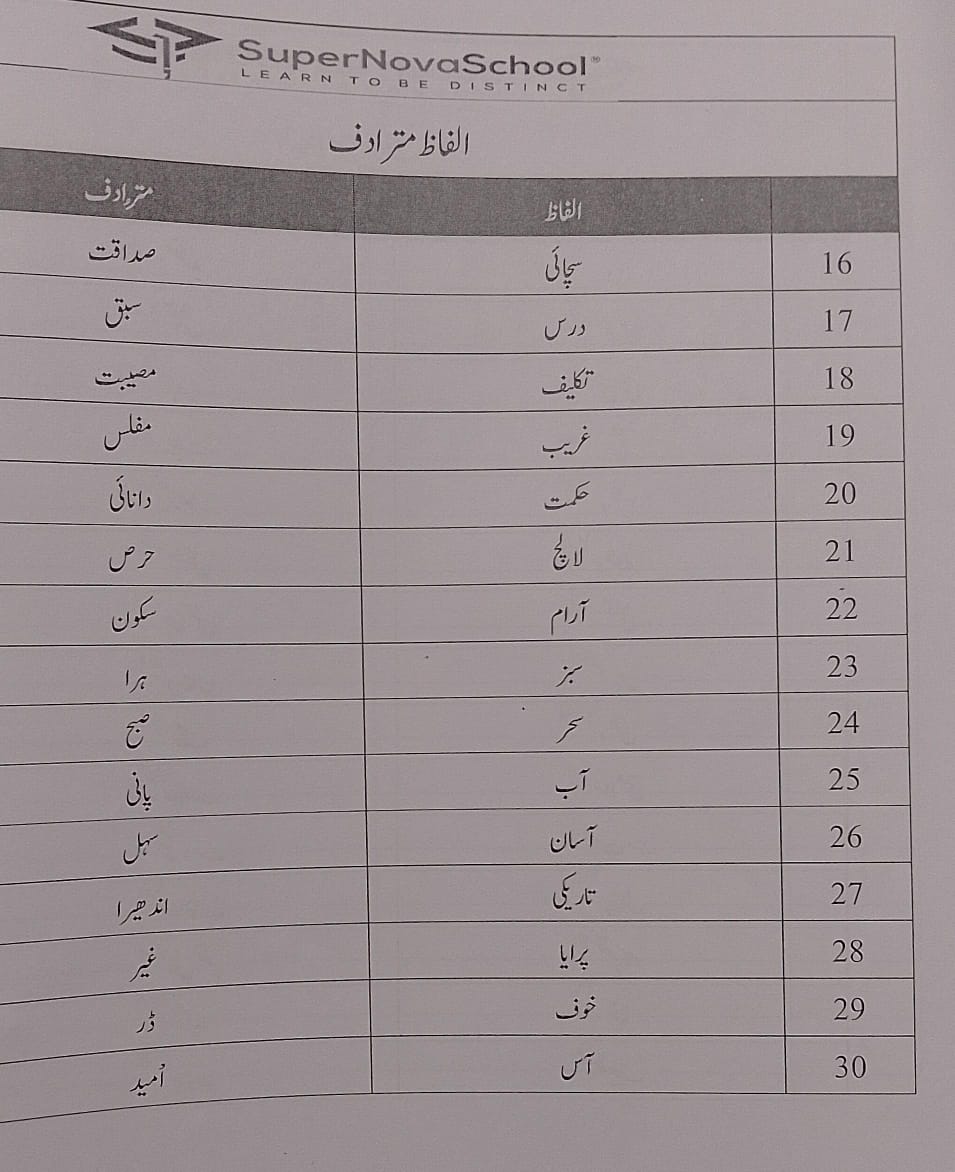 SuperNovaSchool®
LEARN TO BE DISTINCT
الفاظ مترادف
الفاظ مترادف
16 سچائی صداقت
17 درس سبق
18 تکلیف مصیبت
19 غریب مفلس
20 حکمت دانائی
21 لالچ حرص
22 آرام سکون
23 سبز ہرا
24 سحر صبح
25 آب پانی
26 آسان سہل
27 تاریکی اندھیرا
28 پرایا غیر
29 خوف ڈر
30 آس اُمید